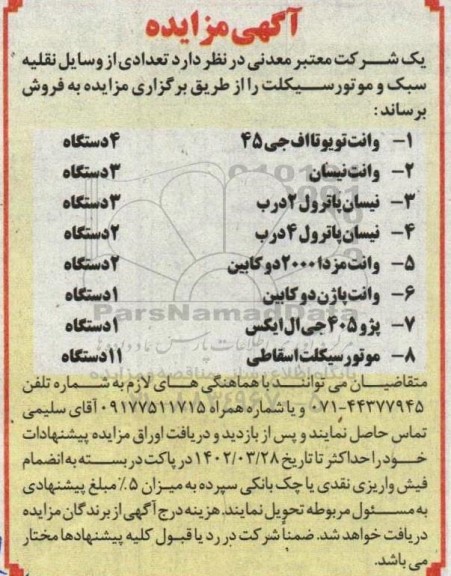 آگهی مزایده
یک شرکت معتبر معدنی در نظر دارد تعدادی از وسایل نقلیه
سبک و موتورسیکلت را از طریق برگزاری مزایده به فروش
برساند:
۱- وانت تویوتا اف جی ۴۵ ۴دستگاه
۲- وانت نیسان ۳دستگاه
۳- نیسان پاترول ۲درب ۳دستگاه
۴- نیسان پاترول ۴درب ۲دستگاه
۵- وانت مزدا ۲۰۰۰دو کابین ۲دستگاه
۶- وانت پاژن دو کابین ۱دستگاه
۷- پژو ۴۰۵ جی ال ایکس ۱دستگاه
۸- موتور سیکلت اسقاطی ۱۱دستگاه
ParsNamadData
متقاضیان می توانند با هماهنگی های لازم به شماره تلفن
۰۷۱-۴۴۳۷۷۹۴۵ و یا شماره همراه ۰۹۱۷۷۵۱۱۷۱۵ آقای سلیمی
تماس حاصل نمایند و پس از بازدید و دریافت اوراق مزایده پیشنهادات
خود را حداکثر تا تاریخ ۱۴۰۲/۰۳/۲۸ در پاکت در بسته به انضمام
فیش واریزی نقدی یا چک بانکی سپرده به میزان ۵٪ مبلغ پیشنهادی
به مسئول مربوطه تحویل نمایند. هزینه درج آگهی از برندگان مزایده
دریافت خواهد شد. ضمناً شرکت در رد یا قبول کلیه پیشنهادها مختار
می باشد.